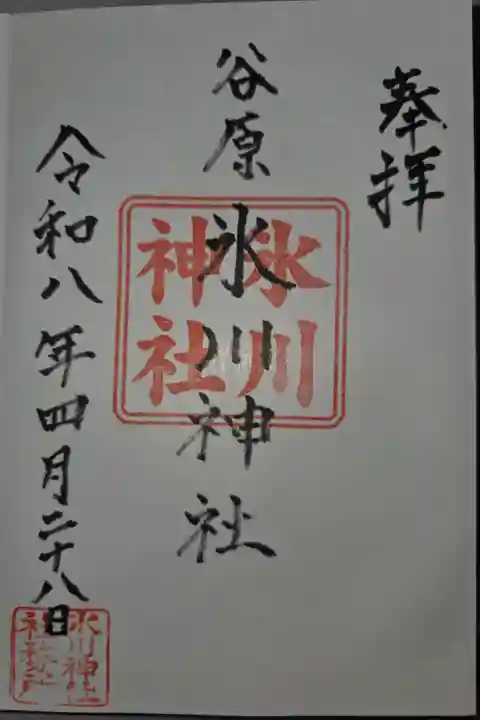 奉拝
谷原氷川神社
氷川神社
令和八年四月二十八日
氷川神社社務所